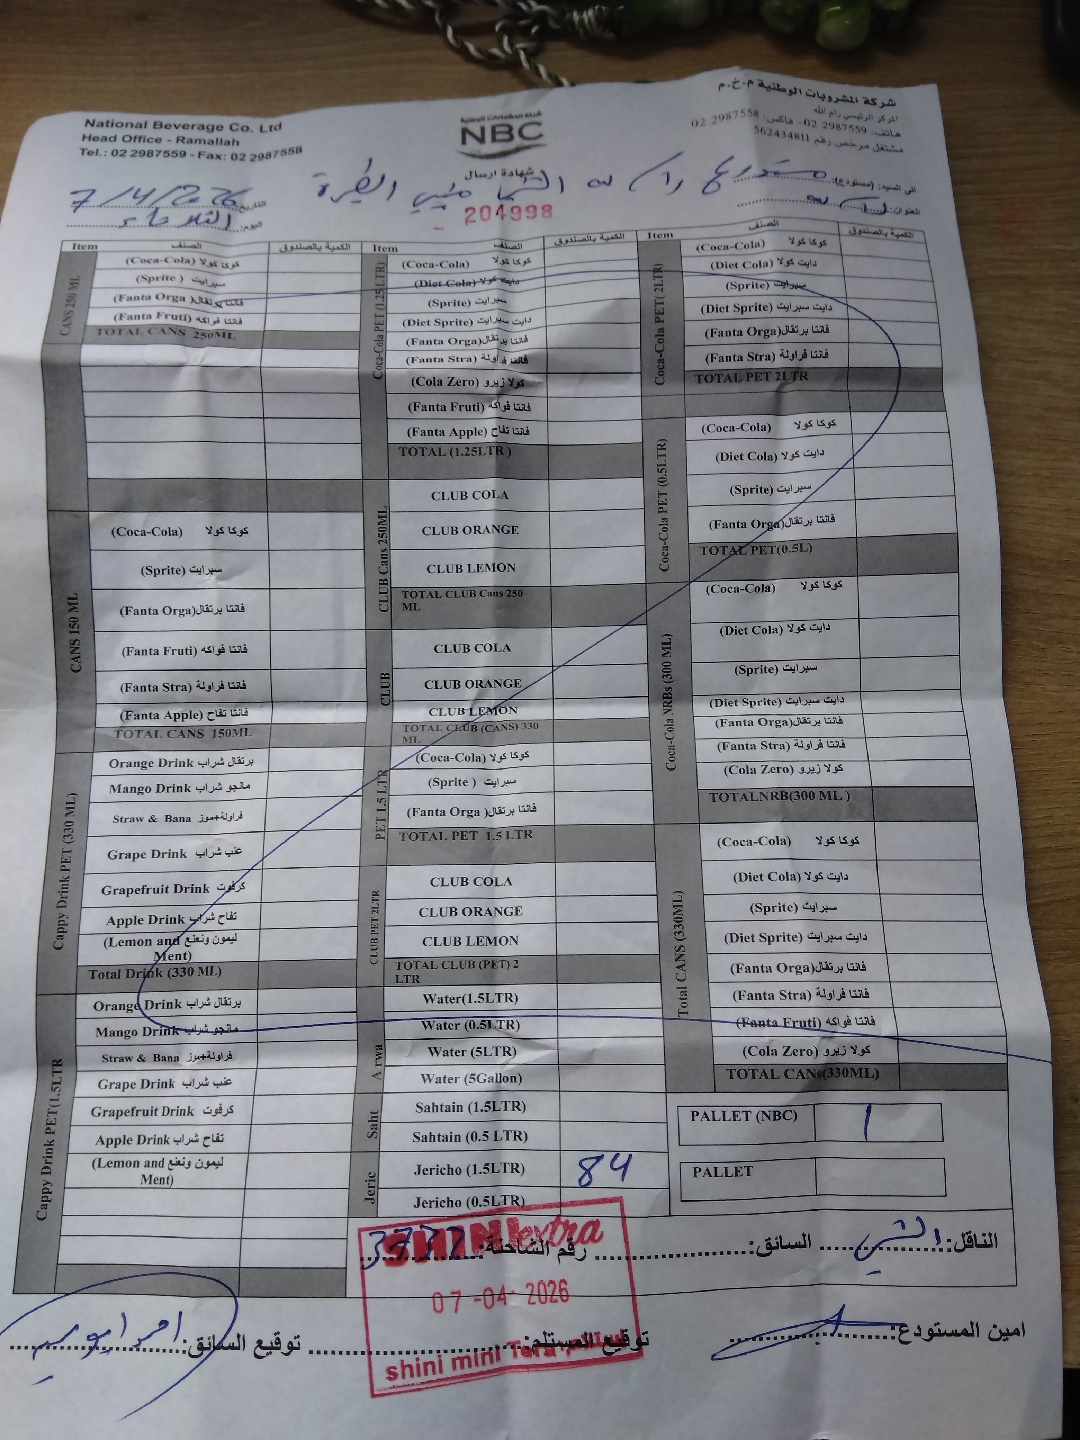 شركة المشروبات الوطنية م.خ.م
المركز الرئيسي رام الله
هاتف: 2987559 02- فاكس: 2987558 02
مشتغل مرخص رقم 562434811
National Beverage Co. Ltd
Head Office - Ramallah
Tel.: 02 2987559 - Fax: 02 2987558
شركة المشروبات الوطنية
NBC
شهادة ارسال
204998
الى السيد: (مستودع): رام الله
العنوان:
التاريخ: 7/4/2026
اليوم: الثلاثاء
Item الصنف الكمية بالصندوق
CANS 250 ML
(Coca-Cola) كوكا كولا
(Sprite ) سبرايت
(Fanta Orga )فانتا برتقال
(Fanta Fruti) فانتا فواكه
TOTAL CANS 250ML
CANS 150 ML
(Coca-Cola) كوكا كولا
(Sprite) سبرايت
(Fanta Orga)فانتا برتقال
(Fanta Fruti) فانتا فواكه
(Fanta Stra) فانتا فراولة
(Fanta Apple) فانتا تفاح
TOTAL CANS 150ML
Cappy Drink PET (330 ML)
Orange Drink برتقال شراب
Mango Drink مانجو شراب
Straw & Bana فراولة+موز
Grape Drink عنب شراب
Grapefruit Drink كرفوت
Apple Drink تفاح شراب
(Lemon and ليمون ونعنع
Ment)
Total Drink (330 ML)
Cappy Drink PET(1.5LTR
Orange Drink برتقال شراب
Mango Drink مانجو شراب
Straw & Bana فراولة+موز
Grape Drink عنب شراب
Grapefruit Drink كرفوت
Apple Drink تفاح شراب
(Lemon and ليمون ونعنع
Ment)
Item الصنف الكمية بالصندوق
Coca-Cola PET (1.25LTR)
(Coca-Cola) كوكا كولا
(Diet Cola) دايت كولا
(Sprite) سبرايت
(Diet Sprite) دايت سبرايت
(Fanta Orga)فانتا برتقال
(Fanta Stra) فانتا فراولة
(Cola Zero) كولا زيرو
(Fanta Fruti) فانتا فواكه
(Fanta Apple) فانتا تفاح
TOTAL (1.25LTR )
CLUB Cans 250ML
CLUB COLA
CLUB ORANGE
CLUB LEMON
TOTAL CLUB Cans 250
ML
CLUB
CLUB COLA
CLUB ORANGE
CLUB LEMON
TOTAL CLUB (CANS) 330
ML
PET 1.5 LTR
(Coca-Cola) كوكا كولا
(Sprite ) سبرايت
(Fanta Orga )فانتا برتقال
TOTAL PET 1.5 LTR
CLUB PET 2LTR
CLUB COLA
CLUB ORANGE
CLUB LEMON
TOTAL CLUB (PET) 2
LTR
Arwa
Water(1.5LTR)
Water (0.5LTR)
Water (5LTR)
Water (5Gallon)
Saht
Sahtain (1.5LTR)
Sahtain (0.5 LTR)
Jeric
Jericho (1.5LTR) 84
Jericho (0.5LTR)
Item الصنف الكمية بالصندوق
Coca-Cola PET( 2LTR)
(Coca-Cola) كوكا كولا
(Diet Cola) دايت كولا
(Sprite) سبرايت
(Diet Sprite) دايت سبرايت
(Fanta Orga)فانتا برتقال
(Fanta Stra) فانتا فراولة
TOTAL PET 2LTR
Coca-Cola PET (0.5LTR)
(Coca-Cola) كوكا كولا
(Diet Cola) دايت كولا
(Sprite) سبرايت
(Fanta Orga)فانتا برتقال
TOTAL PET(0.5L)
Coca-Cola NRBs (300 ML)
(Coca-Cola) كوكا كولا
(Diet Cola) دايت كولا
(Sprite) سبرايت
(Diet Sprite) دايت سبرايت
(Fanta Orga)فانتا برتقال
(Fanta Stra) فانتا فراولة
(Cola Zero) كولا زيرو
TOTALNRB(300 ML )
Total CANS (330ML)
(Coca-Cola) كوكا كولا
(Diet Cola) دايت كولا
(Sprite) سبرايت
(Diet Sprite) دايت سبرايت
(Fanta Orga)فانتا برتقال
(Fanta Stra) فانتا فراولة
(Fanta Fruti) فانتا فواكه
(Cola Zero) كولا زيرو
TOTAL CANs(330ML)
PALLET (NBC) 1
PALLET
الناقل: السائق: رقم الشاحنة:
SHINI extra
07-04-2026
shini mini
امين المستودع: توقيع المستلم: توقيع السائق: